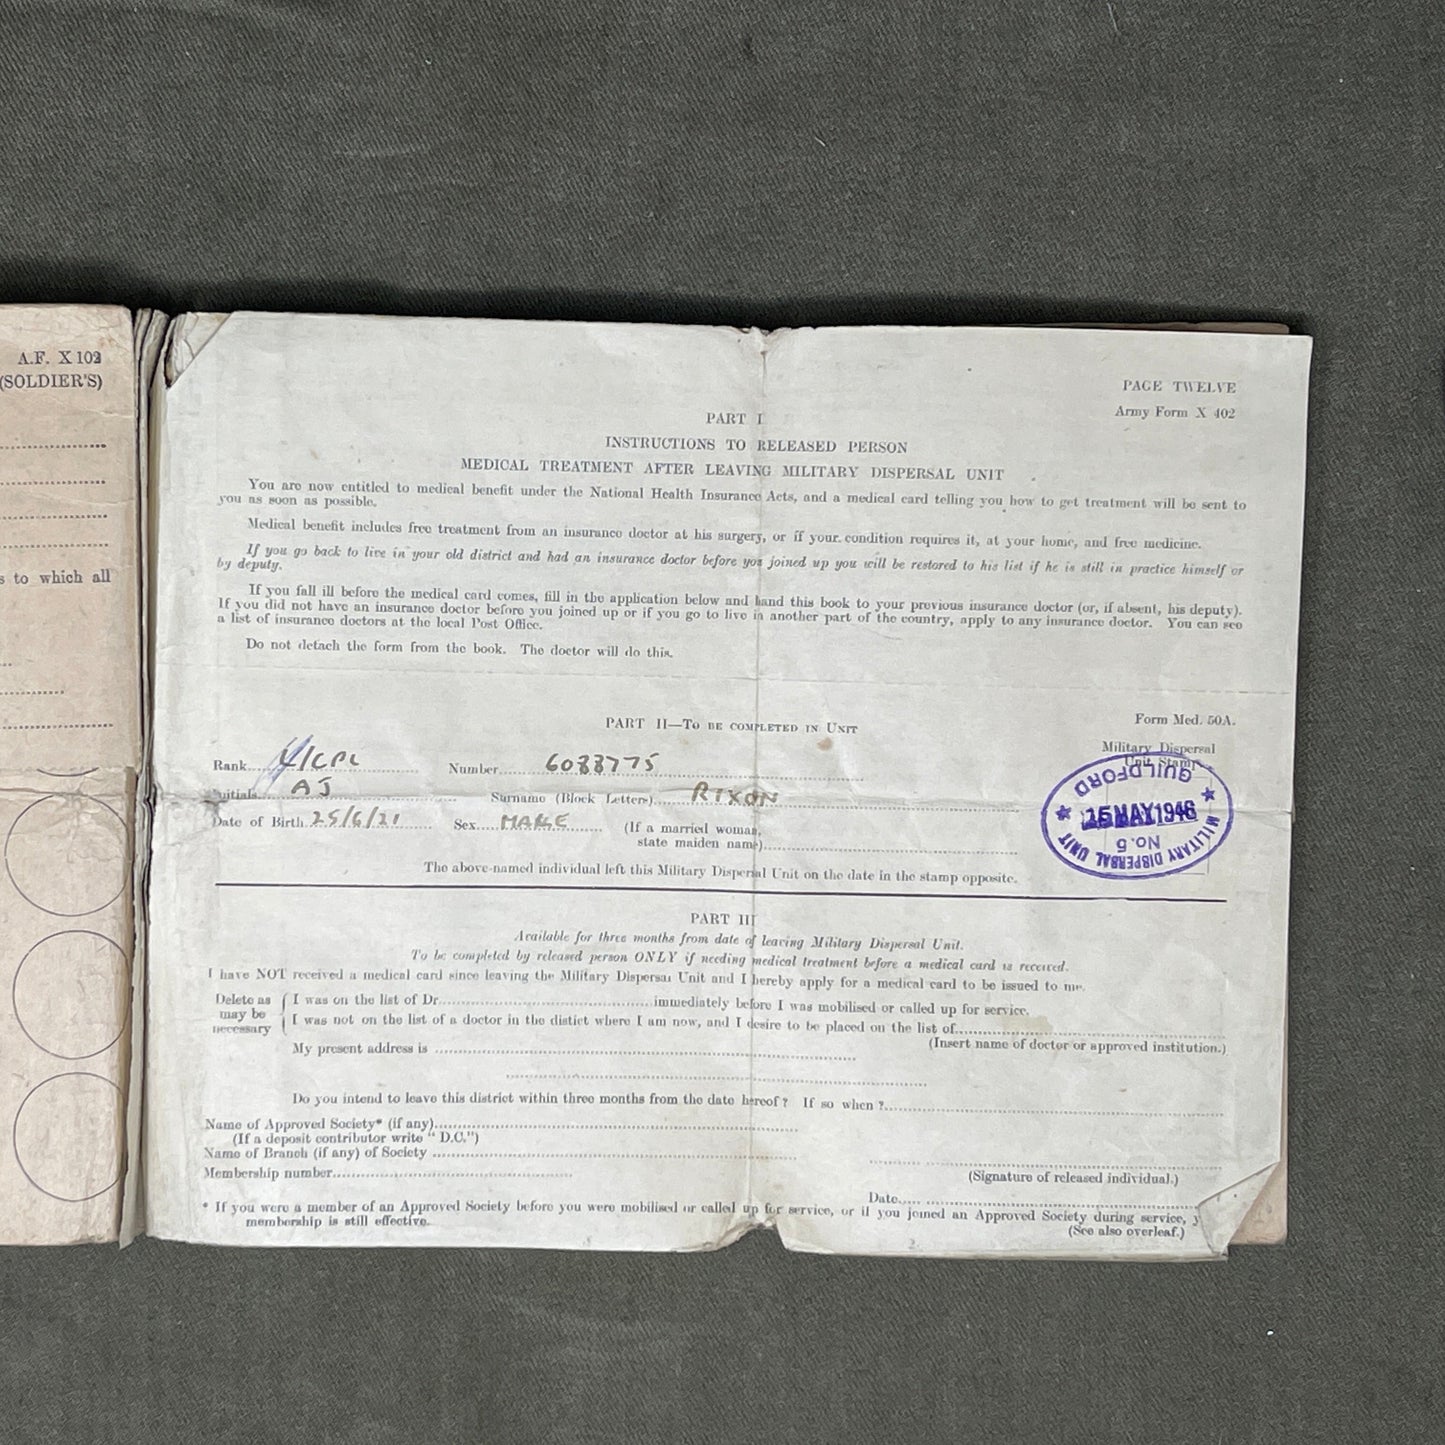 A.F. X 102
(SOLDIER'S)
s to which all
PAGE TWELVE
Army Form X 402
PART I
INSTRUCTIONS TO RELEASED PERSON
MEDICAL TREATMENT AFTER LEAVING MILITARY DISPERSAL UNIT
You are now entitled to medical benefit under the National Health Insurance Acts, and a medical card telling you how to get treatment will be sent to
you as soon as possible.
Medical benefit includes free treatment from an insurance doctor at his surgery, or if your condition requires it, at your home, and free medicine.
If you go back to live in your old district and had an insurance doctor before you joined up you will be restored to his list if he is still in practice himself or
by deputy.
If you fall ill before the medical card comes, fill in the application below and hand this book to your previous insurance doctor (or, if absent, his deputy).
If you did not have an insurance doctor before you joined up or if you go to live in another part of the country, apply to any insurance doctor. You can see
a list of insurance doctors at the local Post Office.
Do not detach the form from the book. The doctor will do this.
PART II—TO BE COMPLETED IN UNIT
Form Med. 50A.
Military Dispersal
Unit Stamp
Rank L/CPL Number 6088775
Initials AJ Surname (Block Letters) RIXON
Date of Birth 25/6/21 Sex MALE (If a married woman,
state maiden name)
GUILDFORD
15 MAY 1946
No. 5
MILITARY DISPERSAL UNIT
The above-named individual left this Military Dispersal Unit on the date in the stamp opposite.
PART III
Available for three months from date of leaving Military Dispersal Unit.
To be completed by released person ONLY if needing medical treatment before a medical card is received.
I have NOT received a medical card since leaving the Military Dispersal Unit and I hereby apply for a medical card to be issued to me.
Delete as
may be
necessary
I was on the list of Dr. immediately before I was mobilised or called up for service.
I was not on the list of a doctor in the distict where I am now, and I desire to be placed on the list of
(Insert name of doctor or approved institution.)
My present address is
Do you intend to leave this district within three months from the date hereof? If so when?
Name of Approved Society* (if any)
(If a deposit contributor write "D.C.")
Name of Branch (if any) of Society
Membership number
(Signature of released individual.)
Date
* If you were a member of an Approved Society before you were mobilised or called up for service, or if you joined an Approved Society during service, y
membership is still effective.
(See also overleaf.)